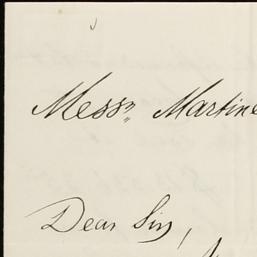 Messrs Martine
Dear Sirs,